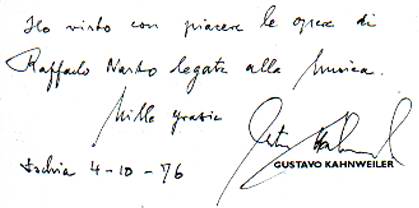 Ho visto con piacere le opere di
Raffaele Nasto legate alla musica.
Mille grazie
Ischia 4-10-76
GUSTAVO KAHNWEILER